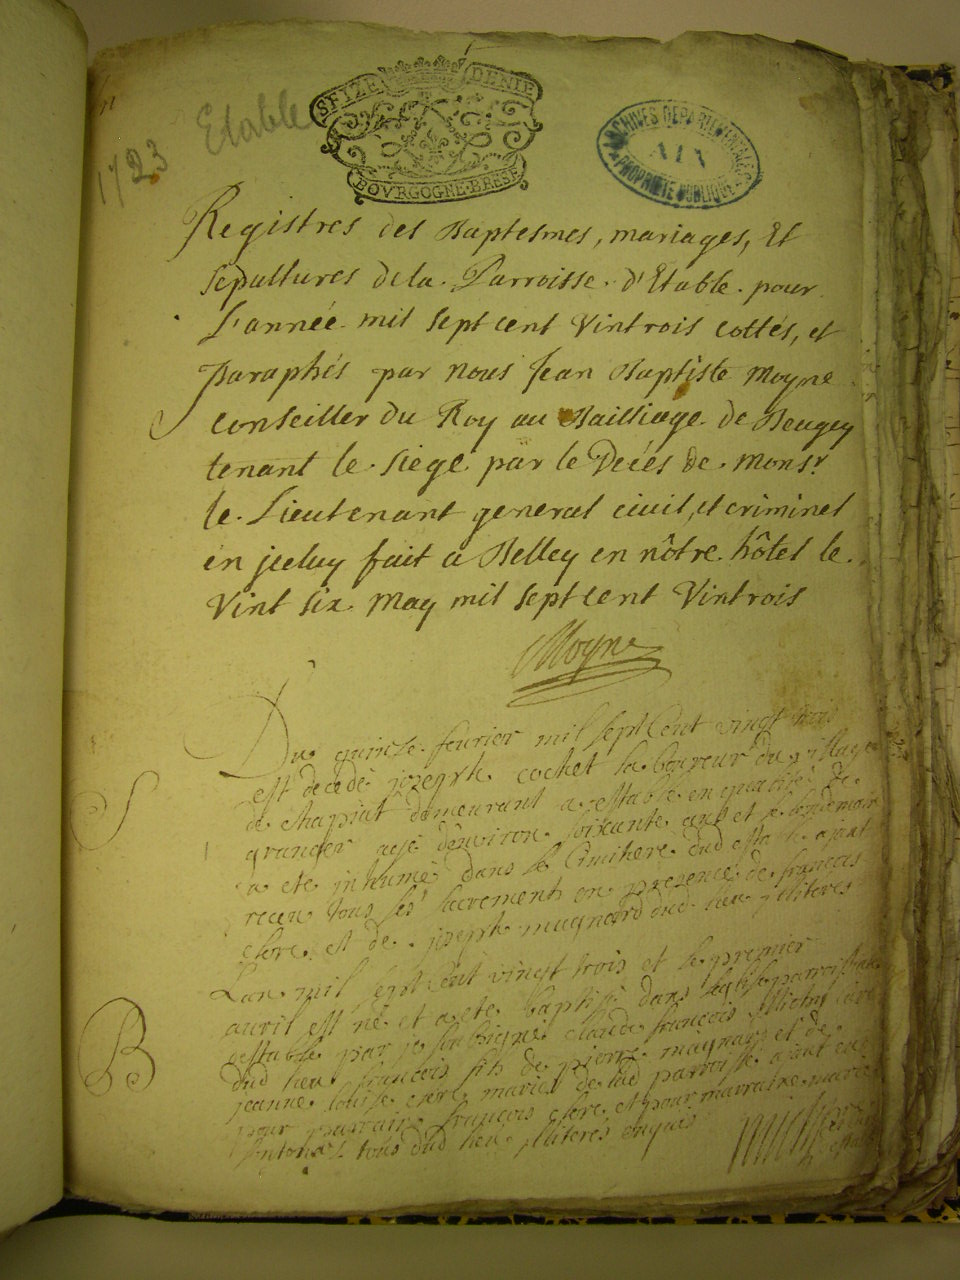 1723 Etable
SEIZE DENIE
BOVRGOGNE·BRESE
ARCHIVES DEPARTEMENTALES
AIN
PROPRIÉTÉ PUBLIQUE
Registres des Baptesmes, mariages, Et
sepultures de la Parroisse d'Etable pour
L'année mil sept cent Vintrois cottés, et
paraphés par nous Jean Baptiste Moyne
conseiller du Roy au Bailliage de Beugey
tenant le siege par le Decés de Monsr
le Lieutenant general civil, et criminel
en jceluy fait a Belley en nôtre hôtel le
Vint six May mil sept cent Vintrois
Moyne
S
Du quinze fevrier mil sept Cent vingt trois
est decedé jozeph cochet laboureur du village
de Chapiat demeurant a estable en qualité de
granger agé d'environ soixante ans et
a eté inhumé dans le Cimithere dud estable ajant
receu tous ses sacrements en presence de françois
clerc et de joseph magnard dud lieu jlliterés
B
Lan mil sept cent vingt trois et le premier
avril est né et a eté baptisé dans leglise parroissiale
destable par je soubsigné claude françois Michy curé
dud lieu françois fils de pierre magnard et de
jeanne louise clerc mariés de lad parroisse ajant eu
pour parrain françois clerc et pour marraine marie
tous dud lieu jlliterés enquis